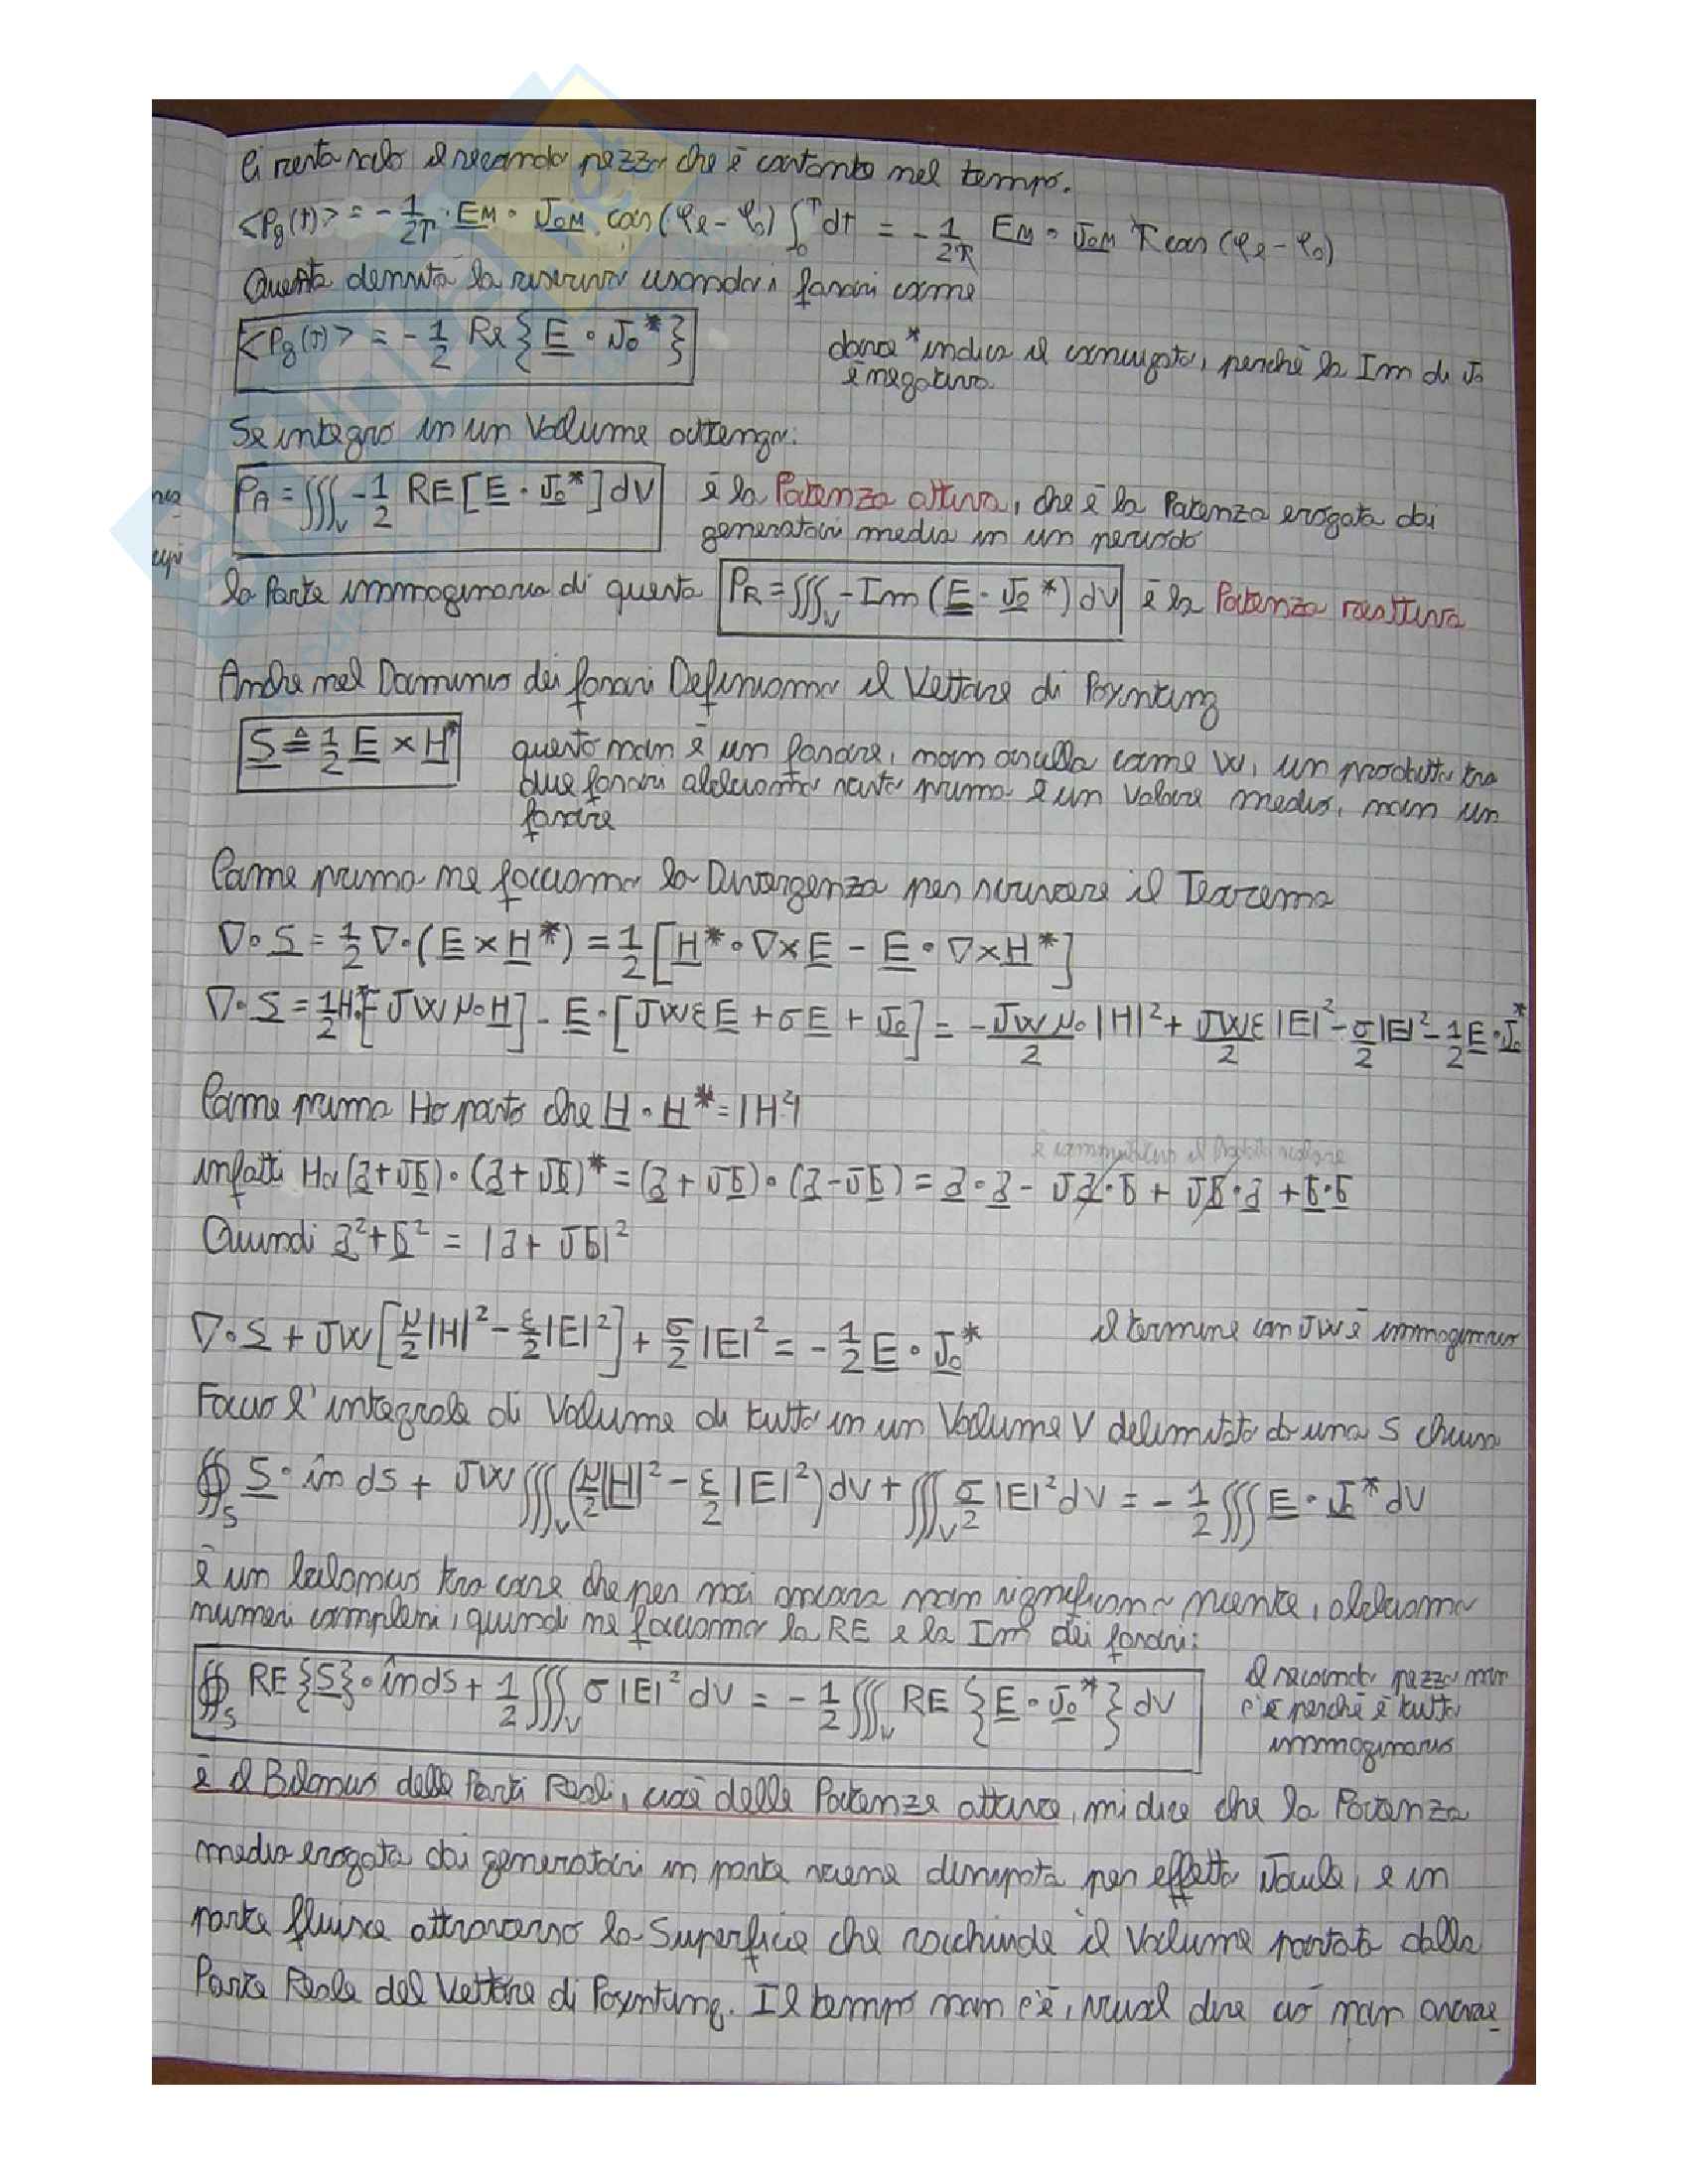 Ci resta solo il secondo pezzo che è costante nel tempo.
<Pg(t)> = - 1/2T · EM · JOM cos(φe - φo) ∫₀ᵀ dt = - 1/2T EM · JOM T cos(φe - φo)
Questa densità la riscrivo usando i fasori come
<Pg(t)> = - 1/2 Re{E · Jo*} dove * indica il coniugato, perché la Im di Jo
è negativa
Se integro in un Volume ottengo:
PA = ∭v - 1/2 RE[E · Jo*] dV è la Potenza attiva, che è la Potenza erogata dai
generatori media in un periodo
la Parte immaginaria di questa PR = ∭v - Im(E · Jo*) dV è la Potenza reattiva
Anche nel Dominio dei fasori Definiamo il Vettore di Poynting
S ≜ 1/2 E × H* questo non è un fasore, non oscilla come W, un prodotto tra
due fasori abbiamo visto prima è un valore medio, non un
fasore
Come prima ne facciamo la Divergenza per scrivere il Teorema
∇·S = 1/2 ∇·(E × H*) = 1/2 [H* · ∇×E - E · ∇×H*]
∇·S = 1/2 H*·[-JWμoH] - E·[JWεE + σE + Jo] = - JWμo/2 |H|² + JWε/2 |E|² - σ/2 |E|² - 1/2 E·Jo*
Come prima Ho posto che H · H* = |H²|
è commutativo il Prodotto scalare
infatti Ho (a+Jb)·(a+Jb)* = (a+Jb)·(a-Jb) = a·a - Ja·b + Jb·a + b·b
Quindi a² + b² = |a + Jb|²
∇·S + JW[μ/2 |H|² - ε/2 |E|²] + σ/2 |E|² = - 1/2 E · Jo* il termine con JW è immaginario
Faccio l'integrale di Volume di tutto in un Volume V delimitato da una S chiusa
∯s S · în dS + JW ∭v (μ/2 |H|² - ε/2 |E|²) dV + ∭v σ/2 |E|² dV = - 1/2 ∭ E · Jo* dV
è un bilancio tra cose che per noi ancora non significano niente, abbiamo
numeri complessi, quindi ne facciamo la RE e la Im dei fasori:
∯s RE{S} · în dS + 1/2 ∭v σ |E|² dV = - 1/2 ∭v RE{E · Jo*} dV il secondo pezzo non
c'è perché è tutto
immaginario
è il Bilancio delle Parti Reali, cioè delle Potenze attive, mi dice che la Potenza
media erogata dai generatori in parte viene dissipata per effetto Joule, e in
parte fluisce attraverso la Superficie che racchiude il Volume portata dalla
Parte Reale del Vettore di Poynting. Il tempo non c'è, vuol dire ciò non